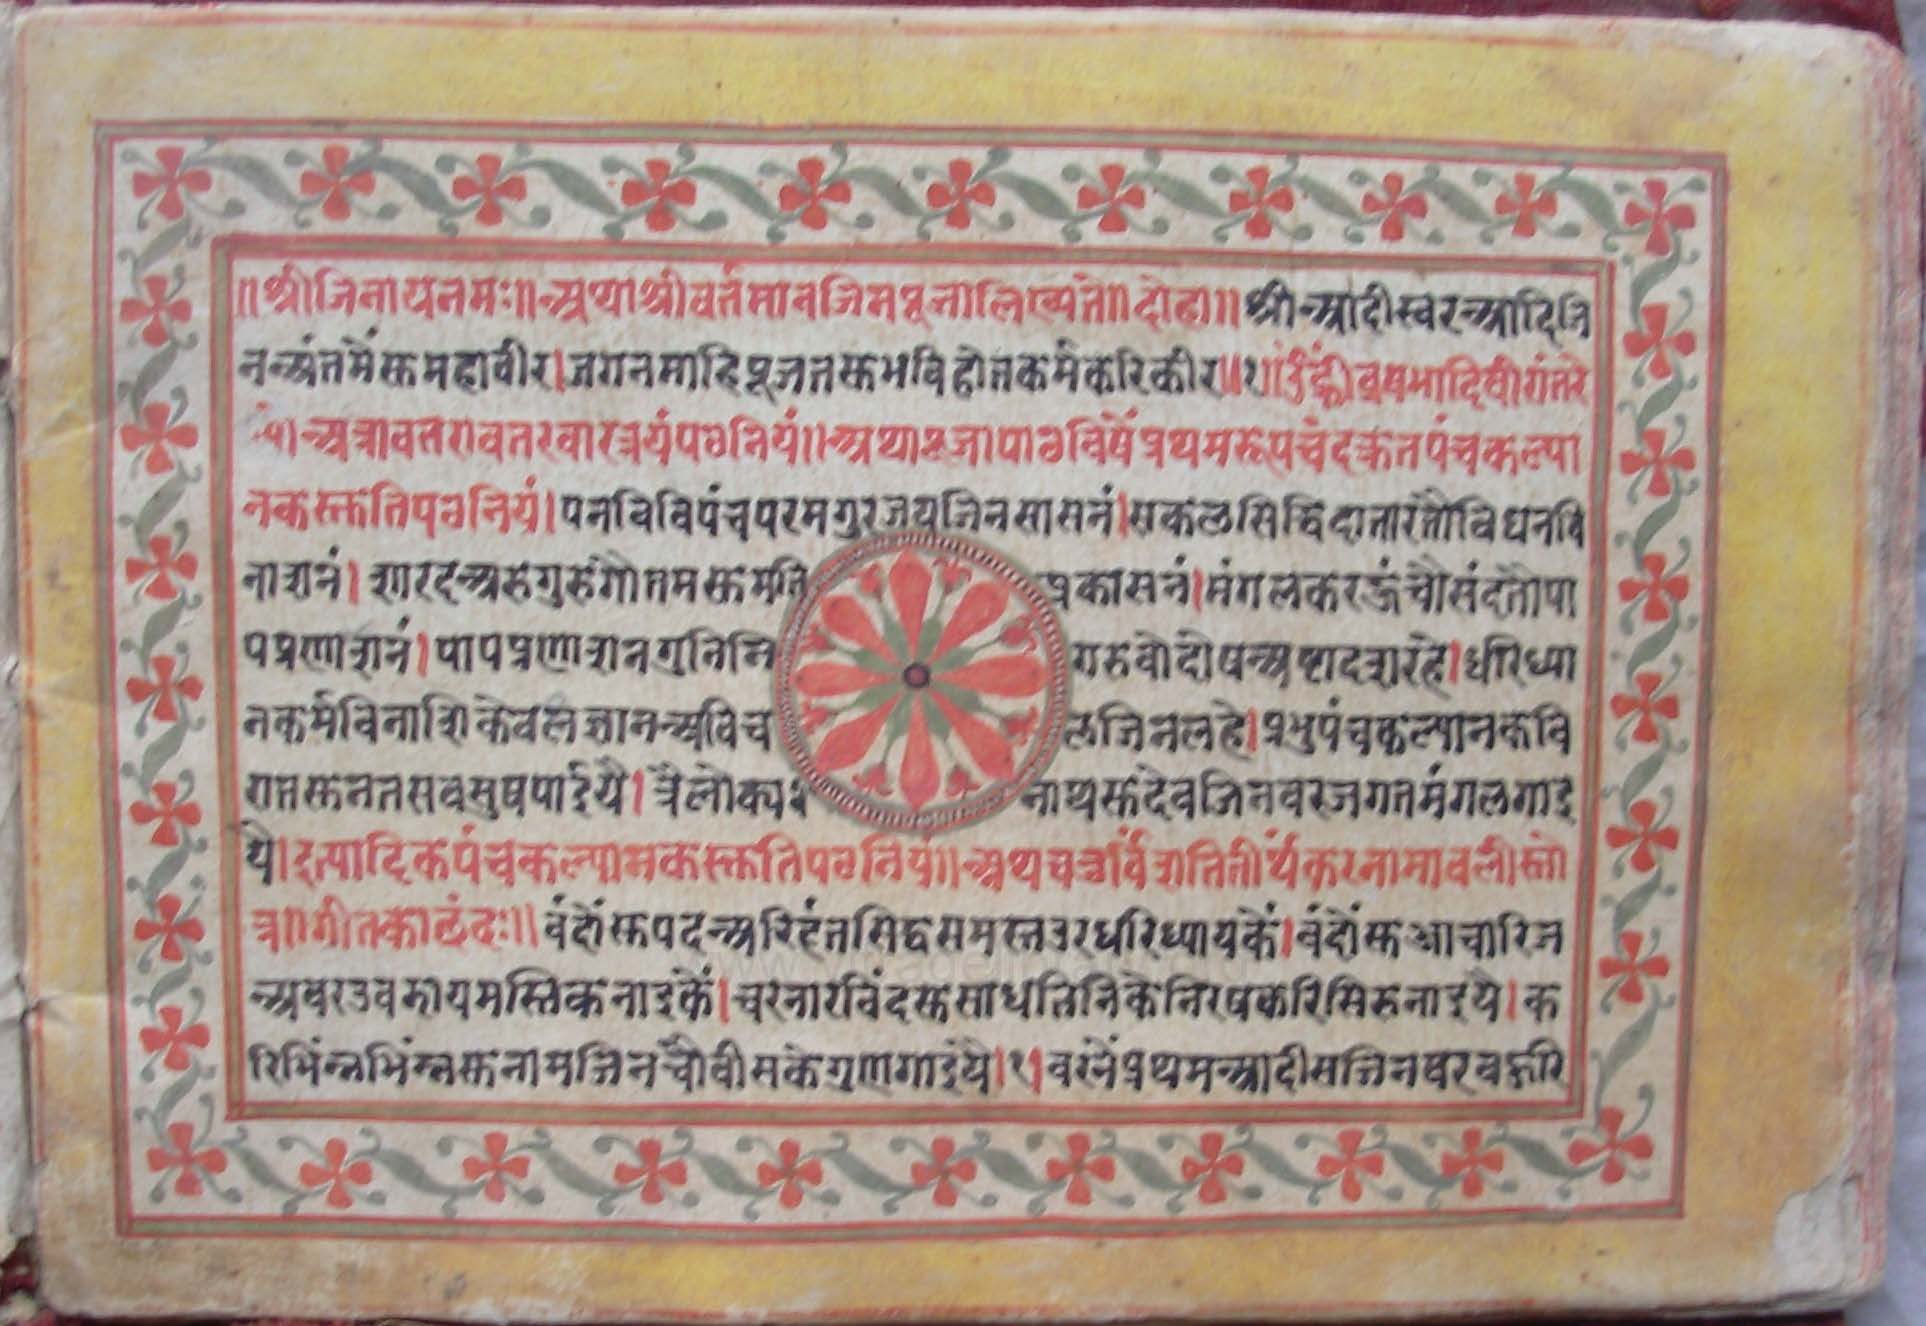 ॥श्रीजिनायनमः॥अथाश्रीवर्तमानजिनपूजालिख्यते॥दोहा॥श्रीआदीस्वरआदिजि
नअंतमैंसुमहावीर।जगनमाहिपूजतसुभविहोतकर्मकरिकीर॥१॥उंह्रीवृषभादिवीरांतरे
अत्रावतरावतरवारत्रयंपठनियं॥अथापूजापाठविषैंप्रथमरूपचंदक्रतपंचकल्या
नकस्तुतिपठनियं।पनविविपंचपरमगुरजयजिनसासनं।सकलसिद्धिदातारतौविधनवि
नाशनं।शारदअरुगुरुगौतमसुमति प्रकासनं।मंगलकरऊंचौसंदतौपा
पप्रणाशनं।पापप्रणाशनगुननि गरुवोदोषअष्टादशरहे।धरिध्या
नकर्मविनाशिकेवलज्ञानअविच लजिनलहे।प्रभुपंचकल्यानकवि
राजसुनतसवसुषपाईयै।त्रैलोक्य नाथसुदेवजिनवरजगतमंगलगाइ
ये।इत्यादिकपंचकल्यानकस्तुतिपठनियं॥अथचत्रर्विंशतितीर्थकरनामावलीस्तो
त्र॥गीतकाछंदः॥वंदौंसुपदअरिहंतसिद्धसमस्तउरधरिध्यायकें।वंदौंसुआचारिज
अवरउवझायमस्तिकनाइकें।चरनारविंदसुसाधतिनिकेनिरषकरिसिरुनाइयै।क
रिभिंन्नभिंन्नसुनामजिनचौवीसकेगुणगाइंये।१।वरनेंप्रथमआदीसजिनवरवहुरि